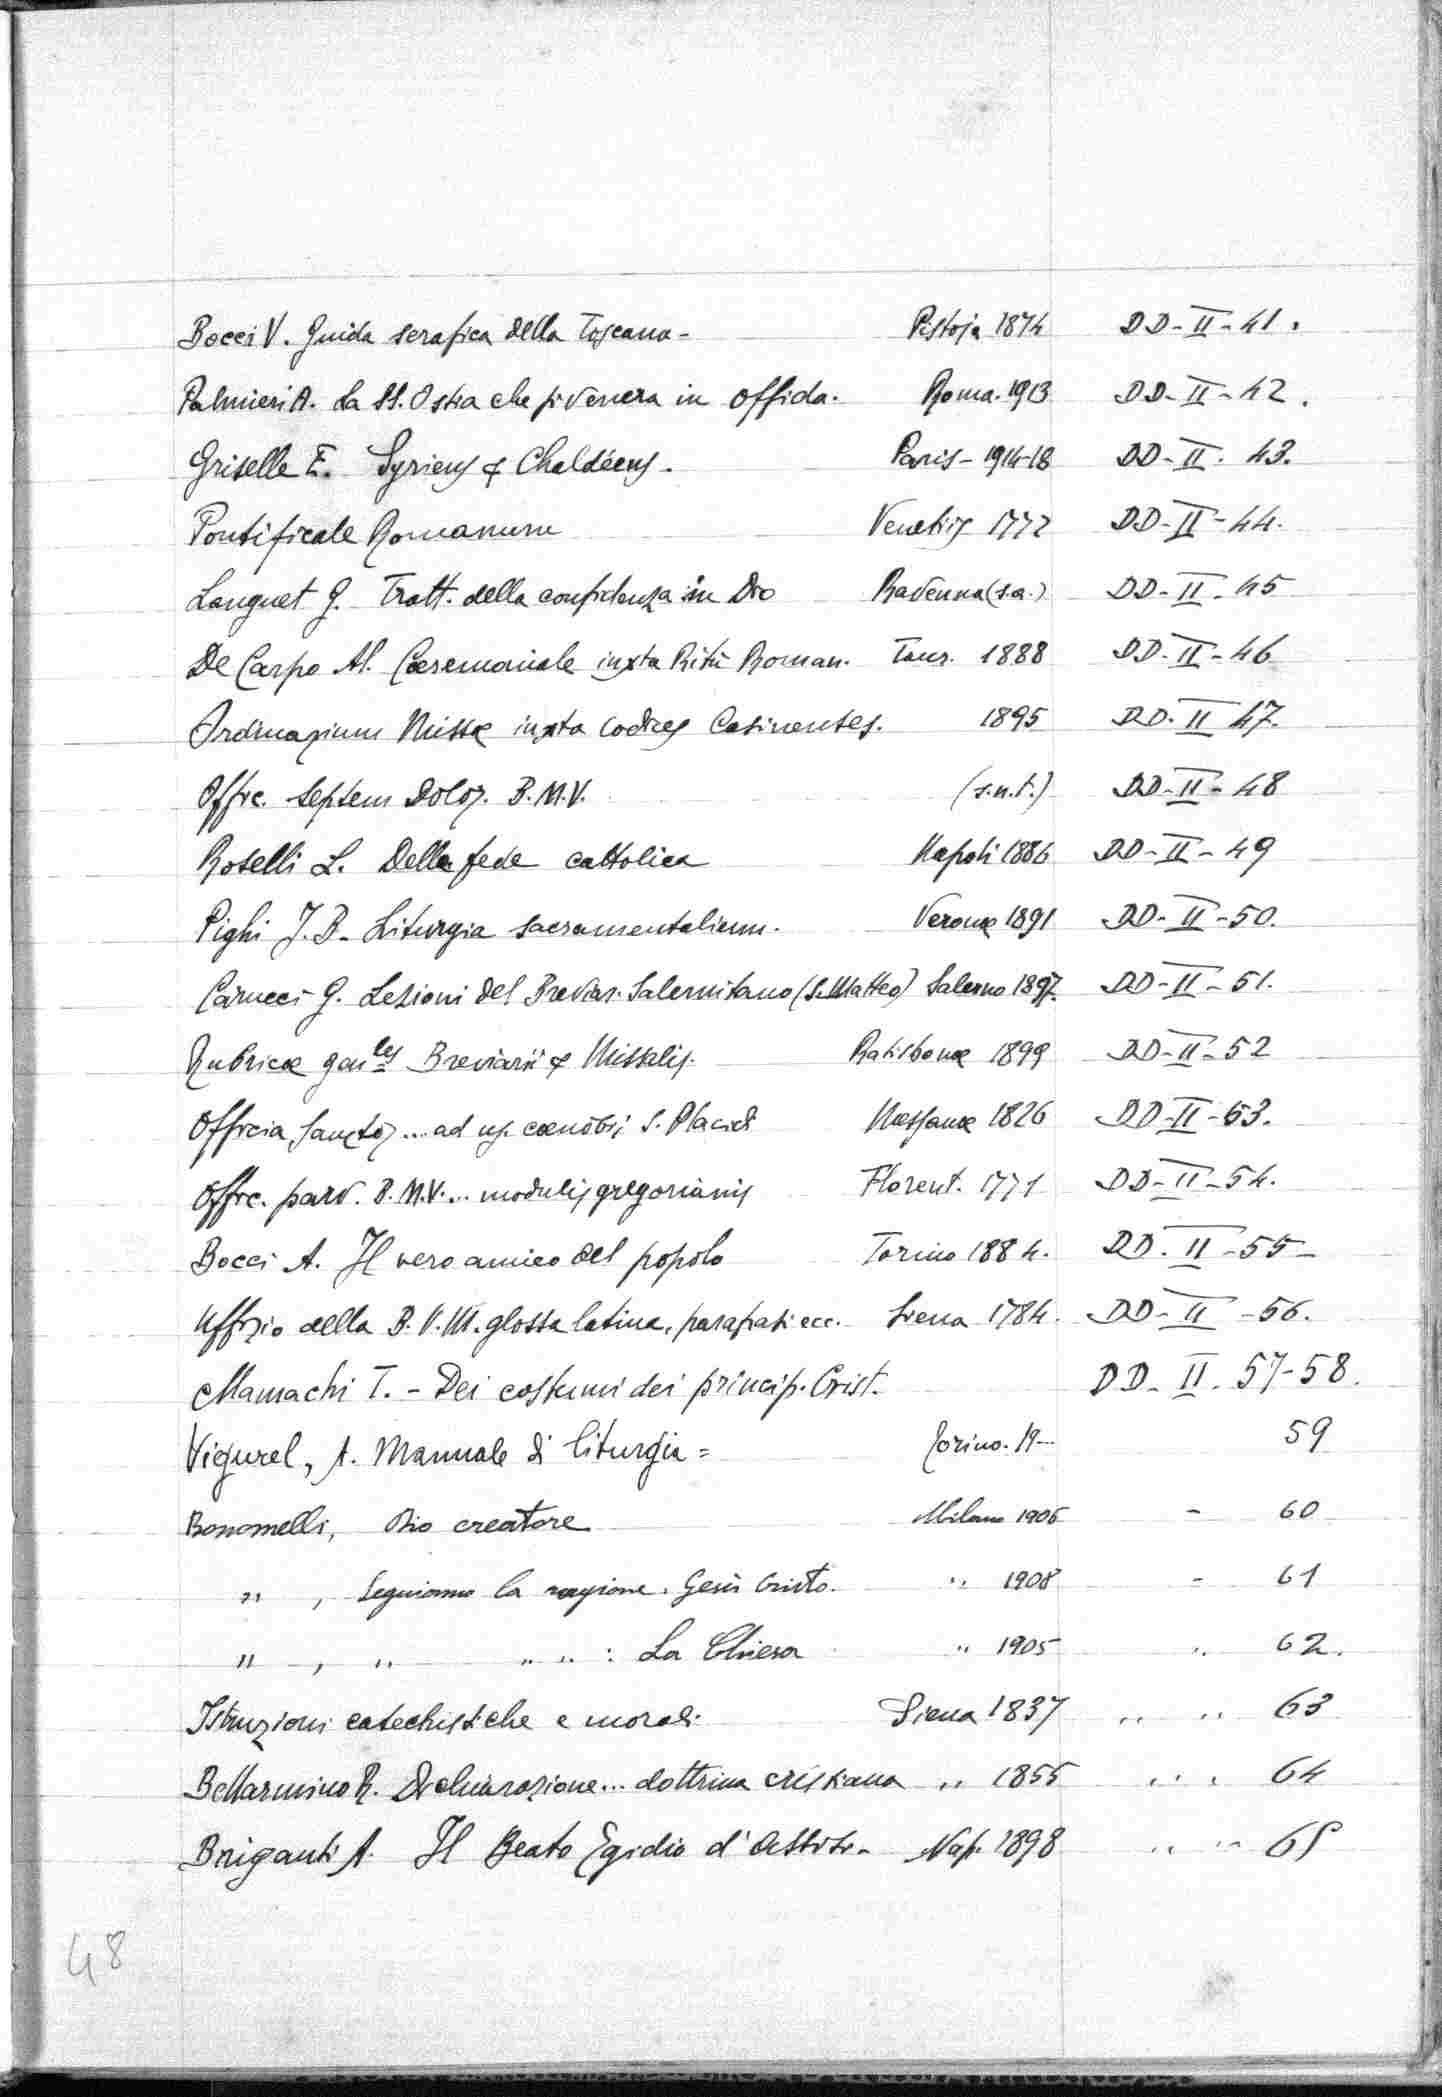 Bocci V. Guida serafica della Toscana - Pistoja 1874 DD-II-41.
Palmieri A. La SS. Ostia che si venera in Offida. Roma. 1913 DD-II-42.
Griselle E. Syriens & Chaldéens. Paris - 1914-18 DD-II. 43.
Pontificale Romanum Venetiis 1772 DD-II-44.
Languet G. Tratt. della confidenza in Dio Ravenna (s.a.) DD-II-45
De Carpo Al. Cæremoniale iuxta Ritū Roman. Taur. 1888 DD-II-46
Ordinarium Missæ iuxta codices Casinenses. 1895 DD-II 47.
Offic. septem Dolor. B.M.V. (s.n.t.) DD-II-48
Roselli L. Della fede cattolica Napoli 1886 DD-II-49
Pighi J.B. Liturgia sacramentalium. Veronæ 1891 DD-II-50.
Carucci G. Lezioni del Breviar. Salernitano (S. Matteo) Salerno 1897. DD-II-51.
Rubricæ genles Breviarii & Missalis. Ratisbonæ 1899 DD-II-52
Officia Sanctor... ad us. cœnobii S. Placidi Messanæ 1826 DD-II-53.
Offic. parv. B.M.V... modulis gregorianis Florent. 1771 DD-II-54.
Bocci A. Il vero amico del popolo Torino 1884. DD. II-55-
Uffizio della B.V.M. glossa latina, parafrasi ecc. Siena 1784. DD-II-56.
Mamachi T. - Dei costumi dei princip. Crist. DD-II. 57-58.
Vigurel, A. Manuale di liturgia = Torino. 19-- 59
Bonomelli, Dio creatore Milano 1906 - 60
" , Seguiamo la ragione. Gesù Cristo. " 1908 - 61
" , " " " : La Chiesa " 1905 " 62.
Istruzioni catechistiche e morali. Siena 1837 " " 63
Bellarmino R. Dichiarazione... dottrina cristiana " 1855 " " 64
Briganti A. Il Beato Egidio d'Assisi- Nap. 1898 " " 65
48